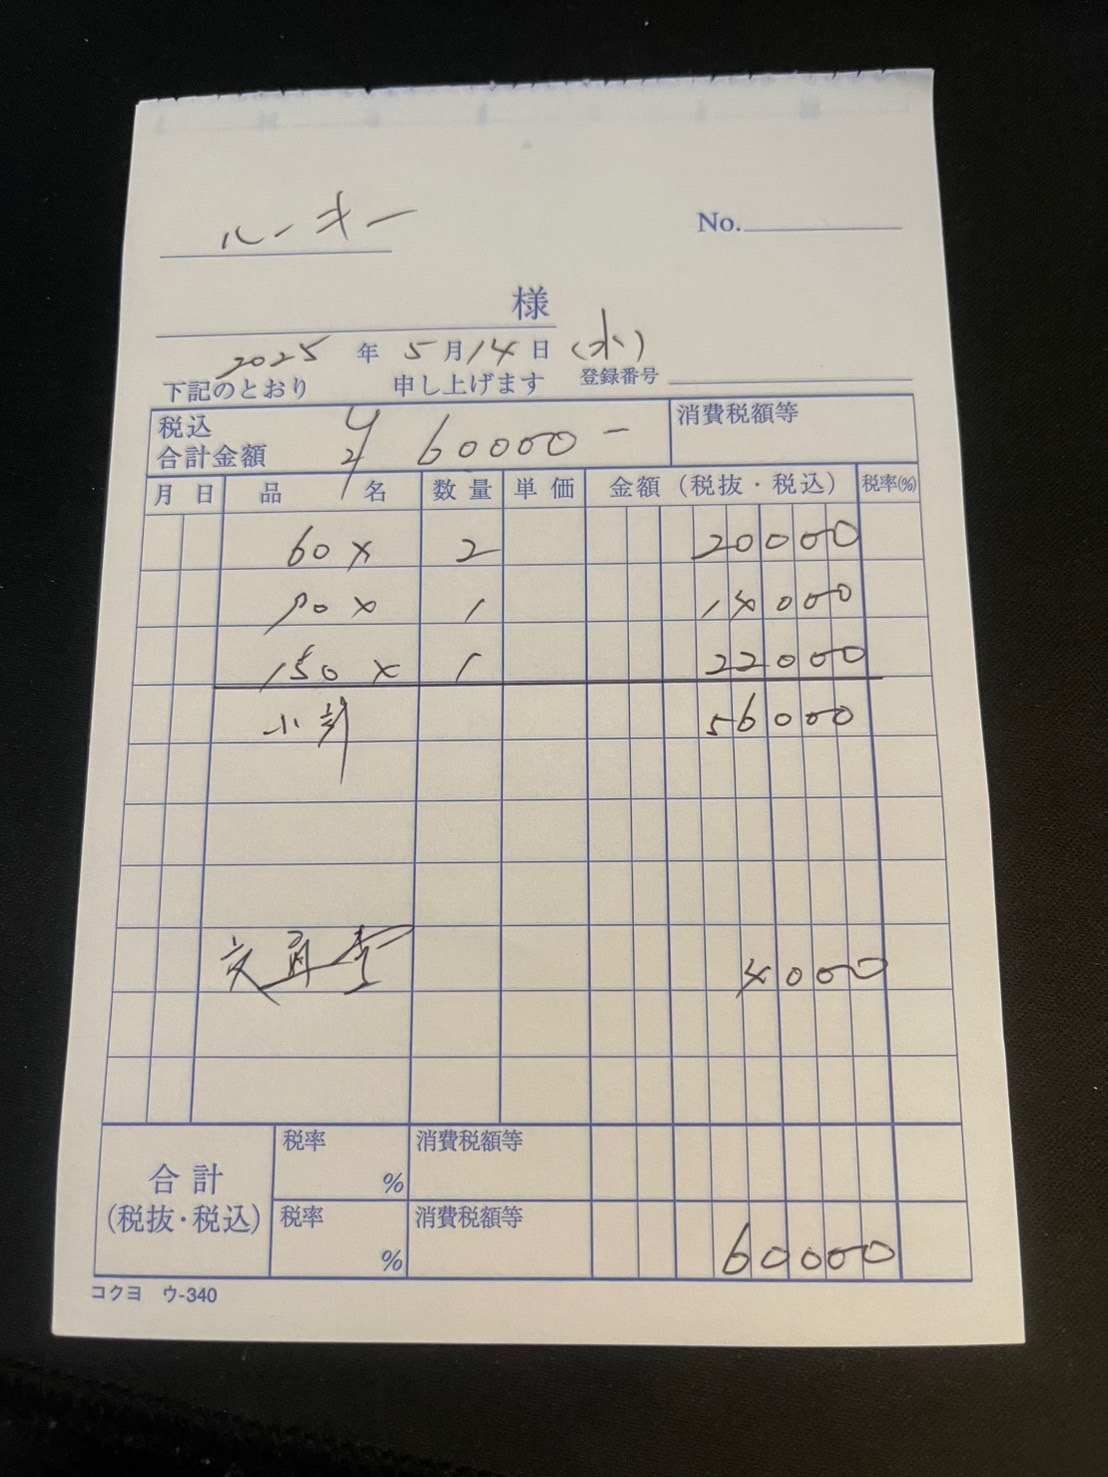 ルーキー
No.
様
2025年5月14日(水)
下記のとおり 申し上げます 登録番号
税込合計金額 ¥60000- 消費税額等
月 日 品 名 数量 単価 金額(税抜・税込) 税率(%)
60 × 2 20000
90 × 1 14000
150 × 1 22000
小計 56000
交通費 4000
合計(税抜・税込) 税率 % 消費税額等
税率 % 消費税額等 60000
コクヨ ウ-340